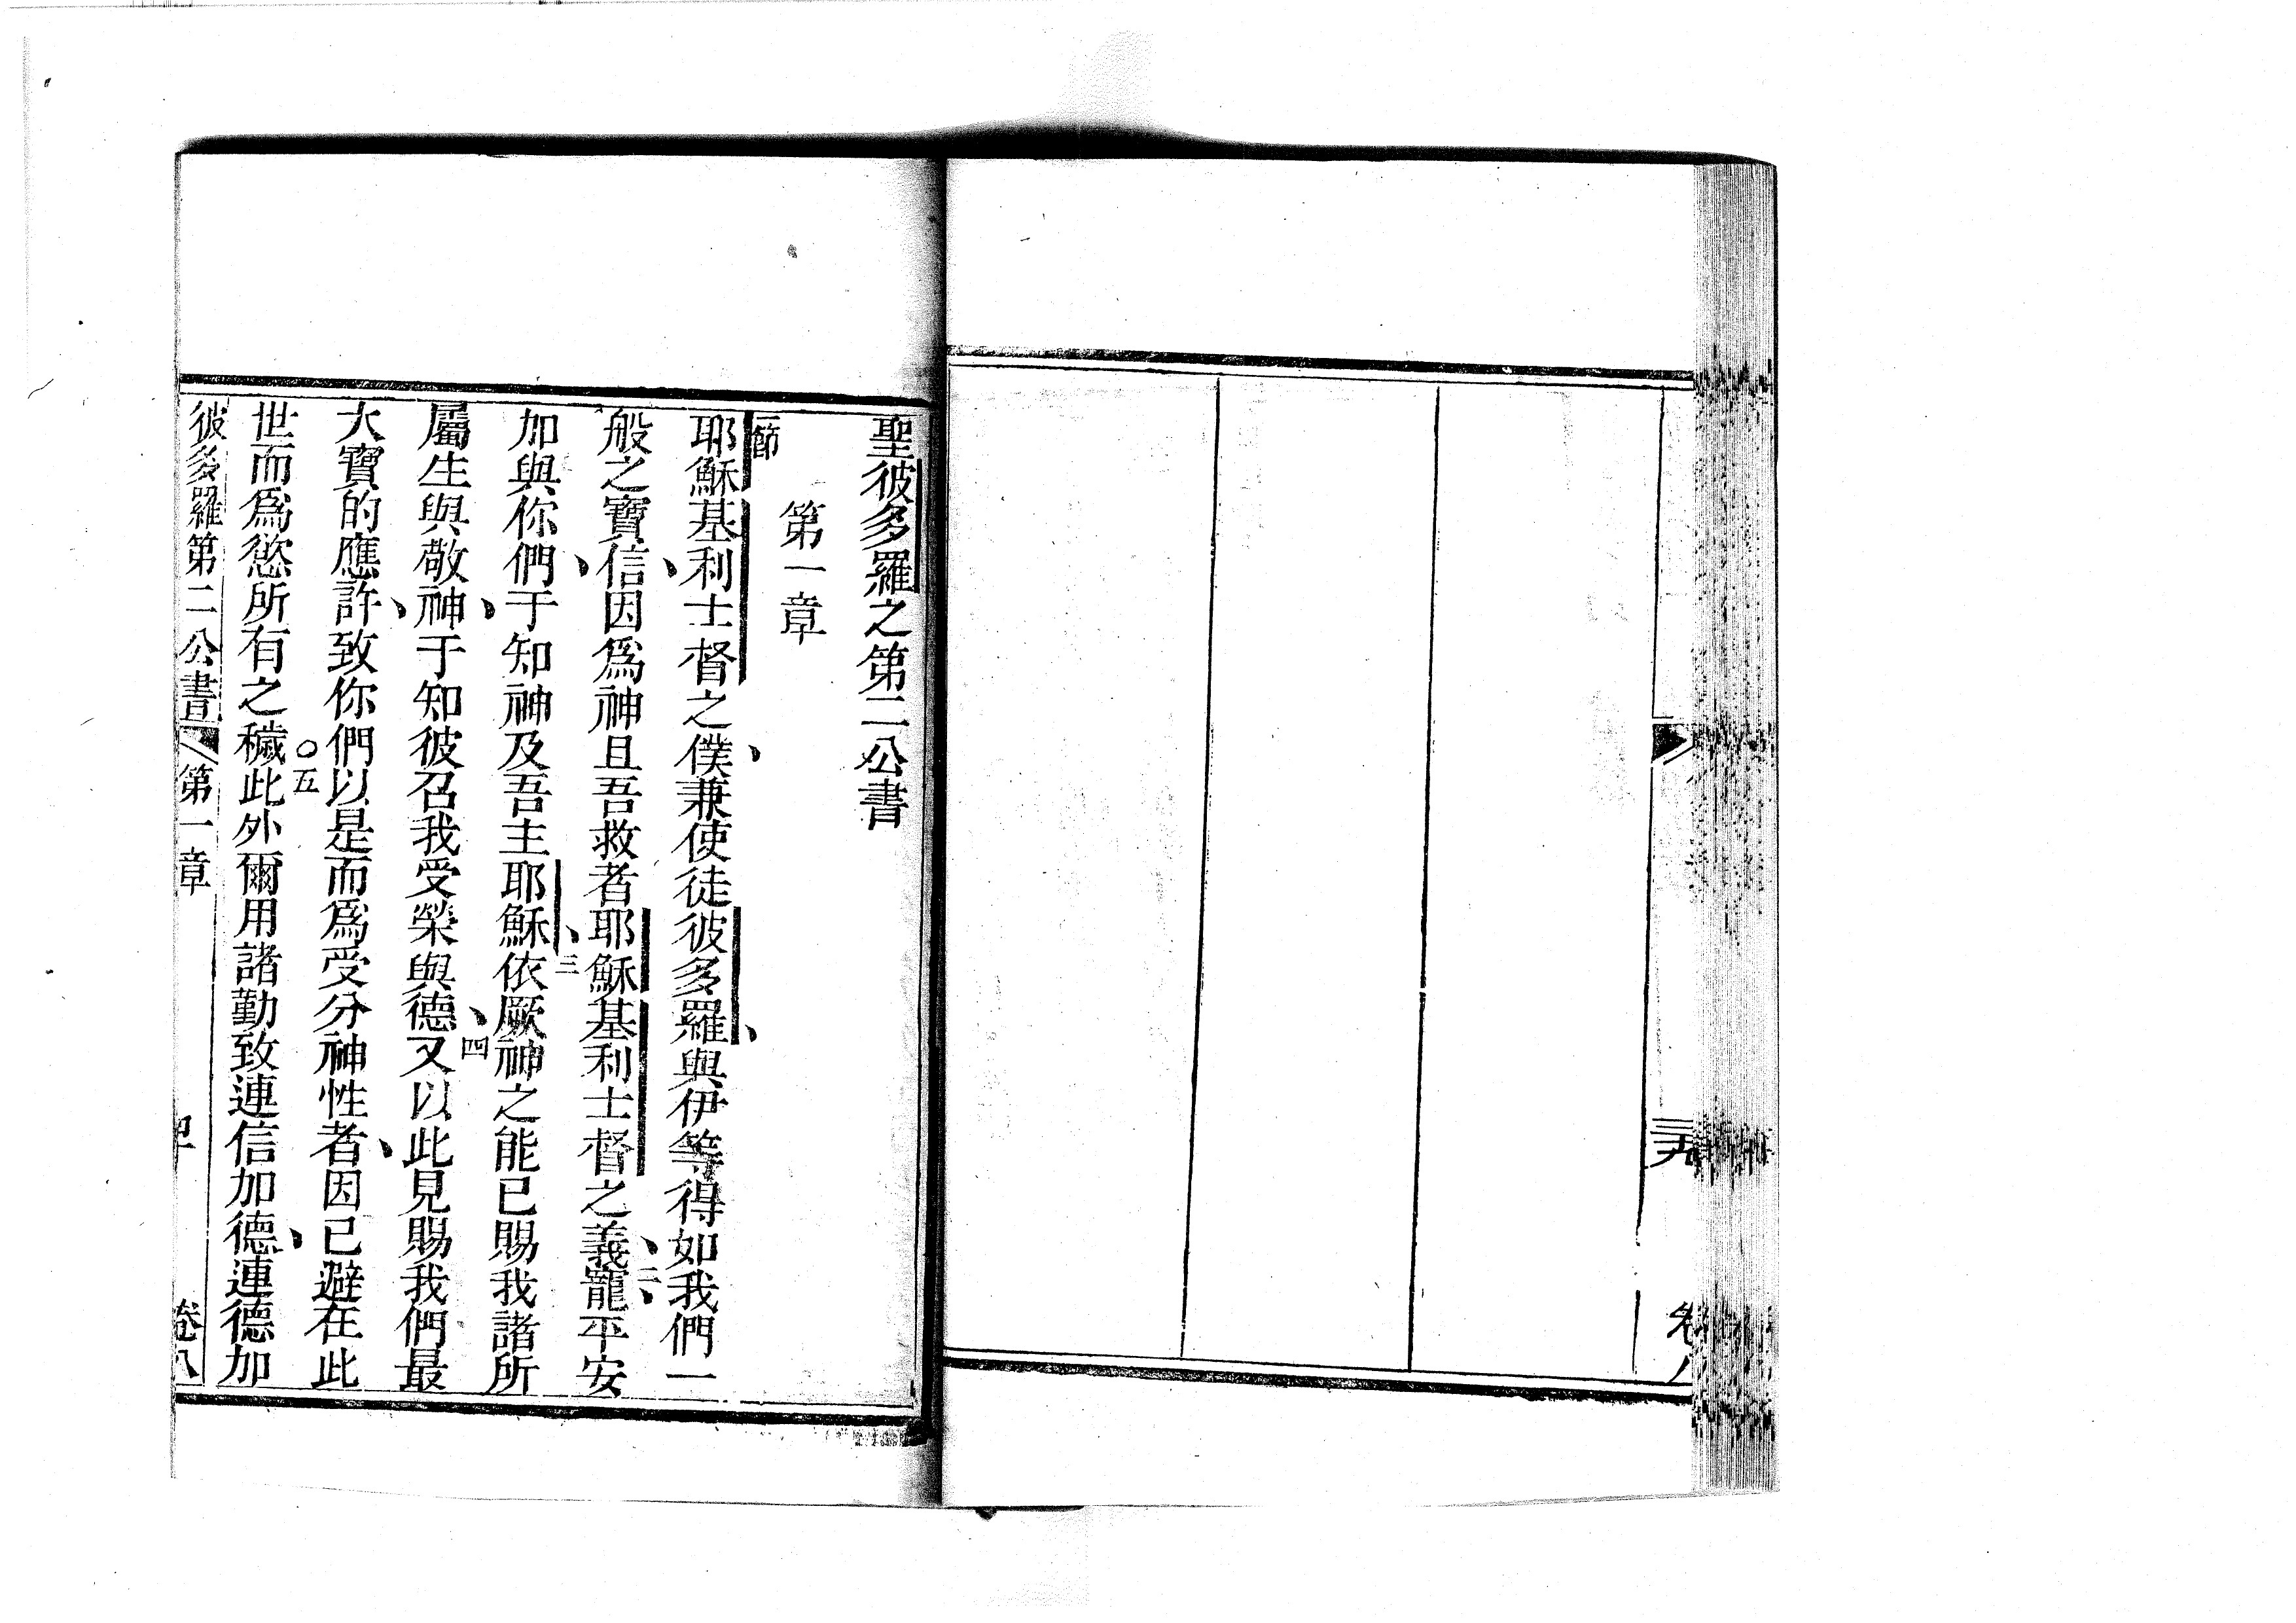 三九
卷八
聖彼多羅之第二公書
第一章
一節
耶穌基利士督之僕、兼使徒彼多羅、與伊等得如我們一
般之寶信、因爲神且吾救者耶穌基利士督之義、二寵、平安
加與你們、于知神及吾主耶穌、三依厥神之能已賜我諸所
屬生與敬神、于知彼召我受榮與德、四又以此見賜我們最
大寶的應許、致你們以是而爲受分神性者、因已避在此
世而爲慾所有之穢○五此外爾用諸勤致連信加德、連德加
彼多羅第二公書 第一章
卷八